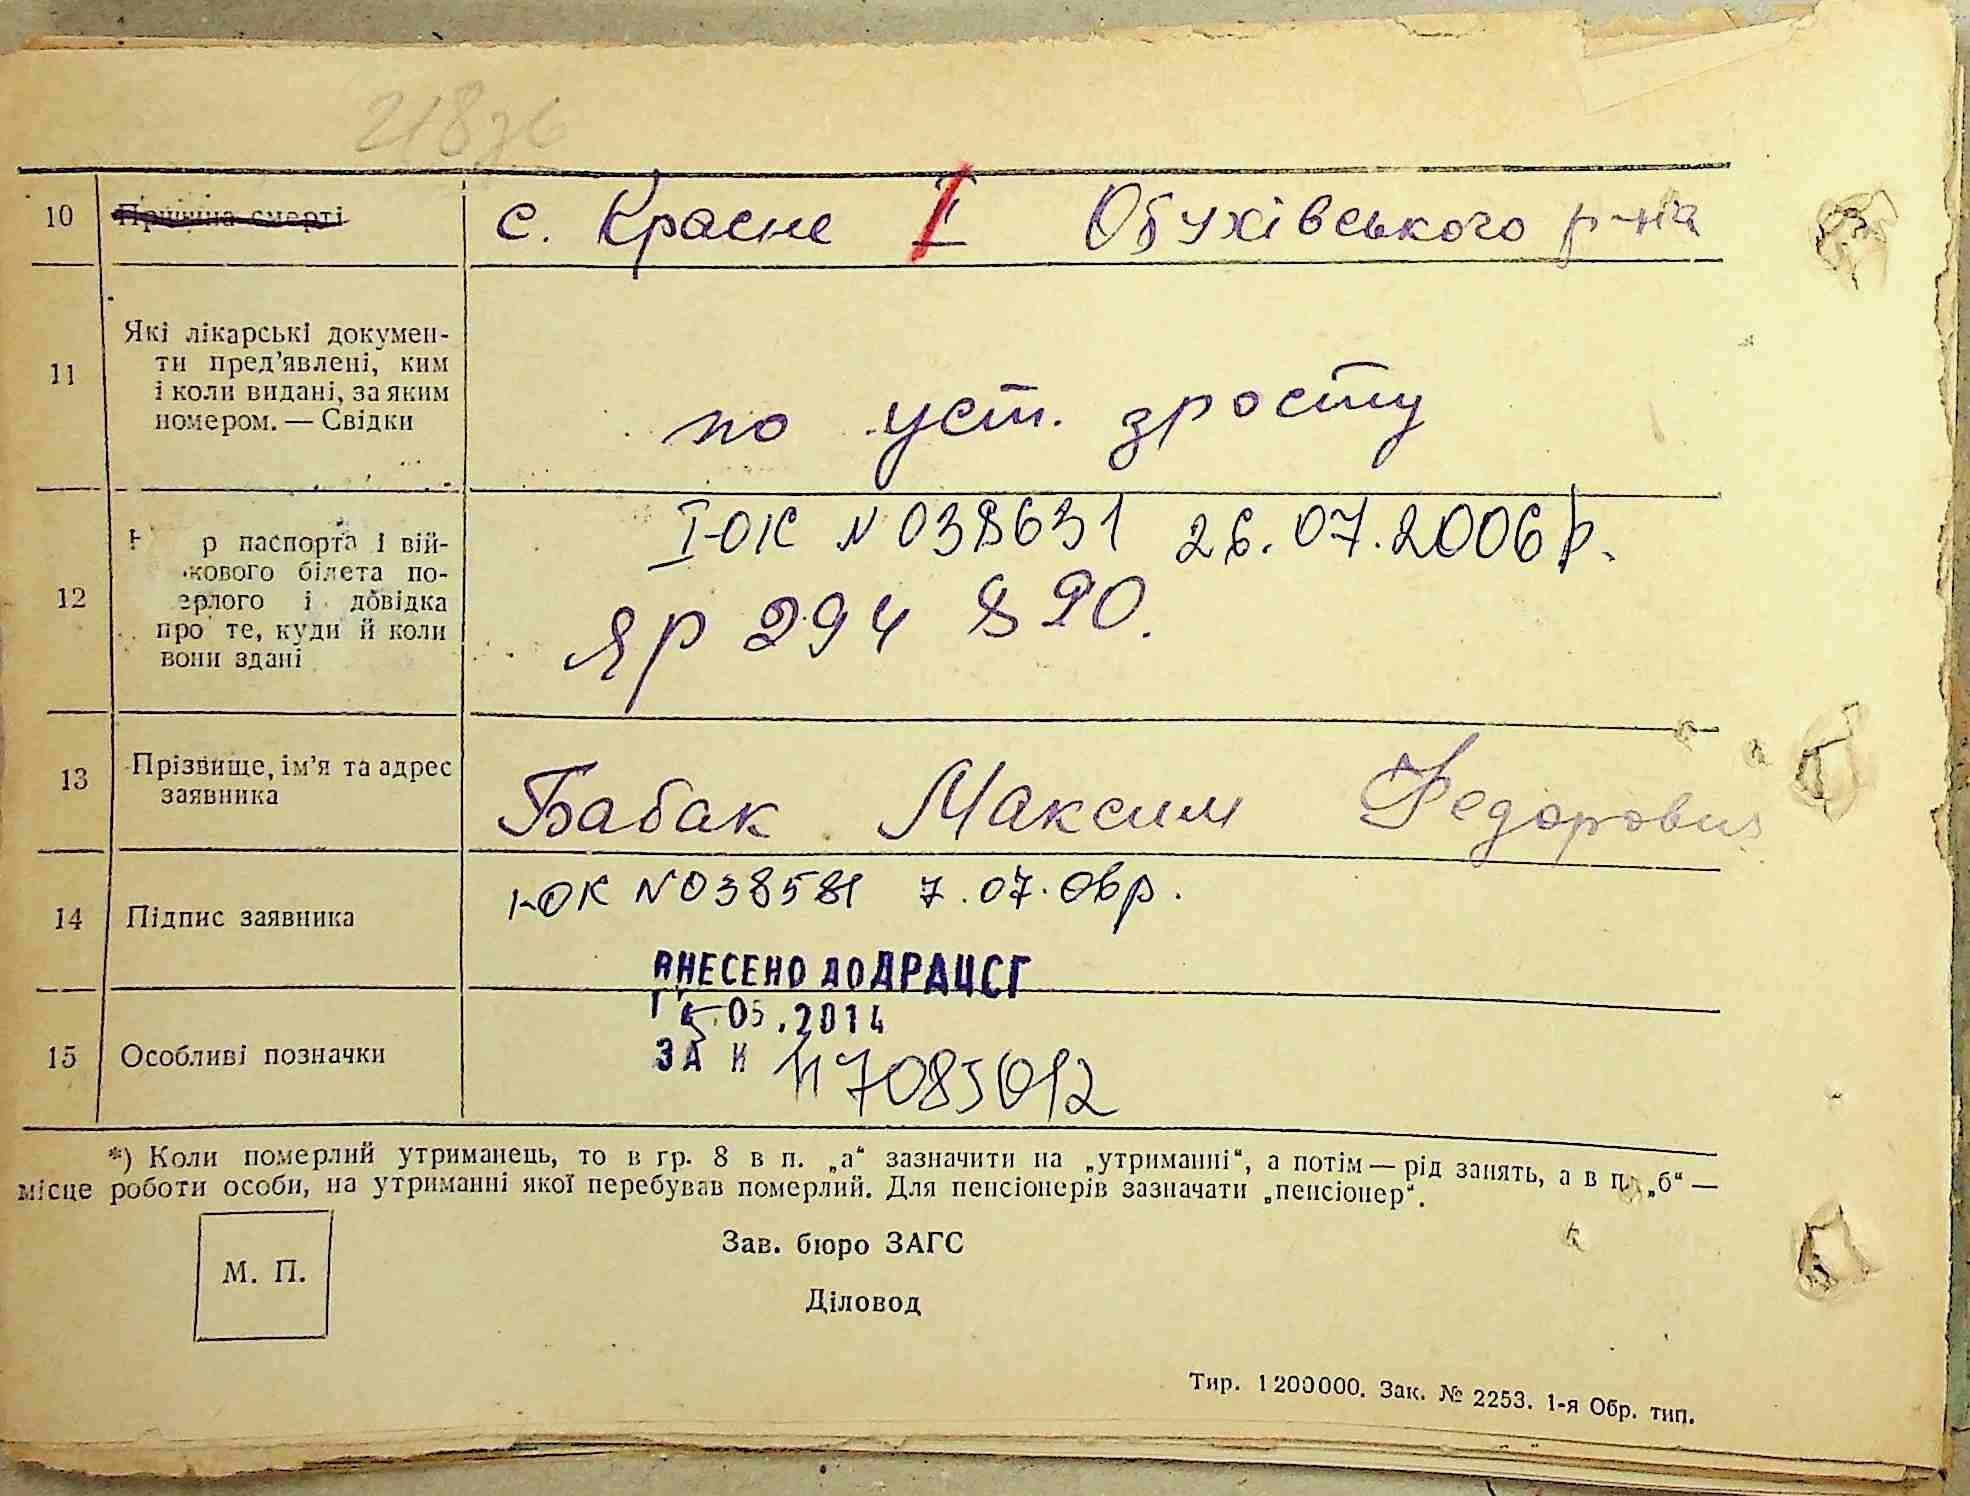 218зв
10 Причина смерті с. Красне I Обухівського р-на
11 Які лікарські докумен-
ти пред'явлені, ким
і коли видані, за яким
номером. — Свідки
по уст. зросту
12 р паспорта і вій-
кового білета по-
ерлого і довідка
про те, куди й коли
вони здані
І-ОК № 038631 26.07.2006р.
ЯР 294 890.
13 Прізвище, ім'я та адрес
заявника
Бабак Максим Федорович
14 Підпис заявника
І-ОК № 038581 7.07.06р.
ВНЕСЕНО ДО ДРАЦСГ
05.2014
15 Особливі позначки
ЗА N 117085012
*) Коли померлий утриманець, то в гр. 8 в п. „а“ зазначити на „утриманні“, а потім — рід занять, а в п. „б“ —
місце роботи особи, на утриманні якої перебував померлий. Для пенсіонерів зазначати „пенсіонер“.
Зав. бюро ЗАГС
М. П.
Діловод
Тир. 1200000. Зак. № 2253. 1-я Обр. тип.